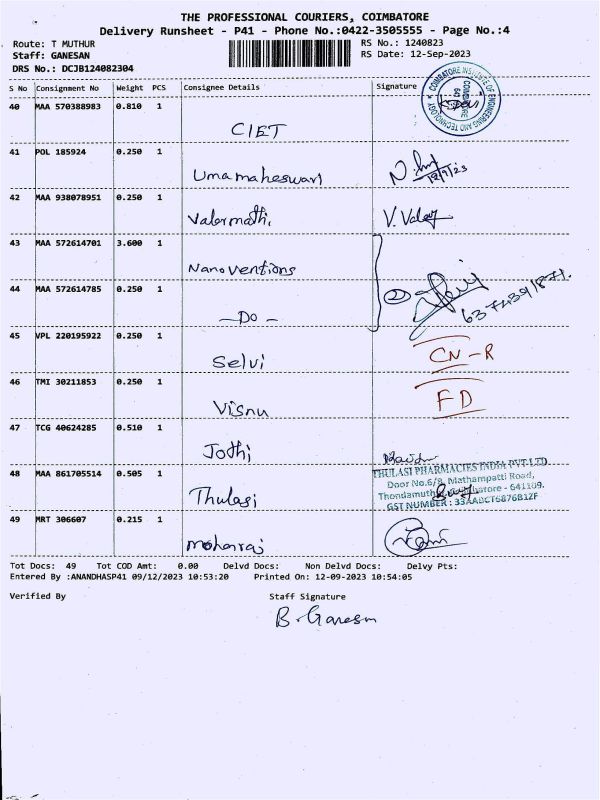 THE PROFESSIONAL COURIERS, COIMBATORE
Delivery Runsheet - P41 - Phone No.:0422-3505555 - Page No.:4
Route: T MUTHUR RS No.: 1240823
Staff: GANESAN RS Date: 12-Sep-2023
DRS No.: DCJB124082304
S No Consignment No Weight PCS Consignee Details Signature
COIMBATORE INSTITUTE OF ENGINEERING AND TECHNOLOGY
40 MAA 570388983 0.810 1
CIET
41 POL 185924 0.250 1
Umamaheswari
12/9/23
42 MAA 938078951 0.250 1
Valarmathi V. Valar
43 MAA 572614701 3.600 1
Nanoventions
44 MAA 572614785 0.250 1
② 6374391871.
-Do-
45 VPL 220195922 0.250 1
Selvi CN-R
46 TMI 30211853 0.250 1
Visnu FD
47 TCG 40624285 0.510 1
Jothi
THULASI PHARMACIES INDIA PVT LTD
48 MAA 861705514 0.505 1
Door No.6/8, Mathampatti Road,
Thulasi
GST NUMBER : 33AABCT6876B1ZF
49 MRT 306607 0.215 1
mohanraj
Tot Docs: 49 Tot COD Amt: 0.00 Delvd Docs: Non Delvd Docs: Delvy Pts:
Entered By :ANANDHASP41 09/12/2023 10:53:20 Printed On: 12-09-2023 10:54:05
Verified By Staff Signature
B. Ganesan